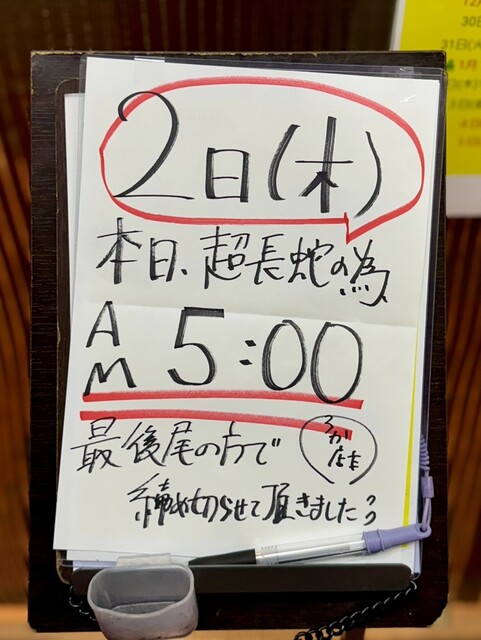 2日(木)
本日、超長蛇の為、
AM 5:00
最後尾の方で
締め切らせて頂きました
30日
31日(火
1月